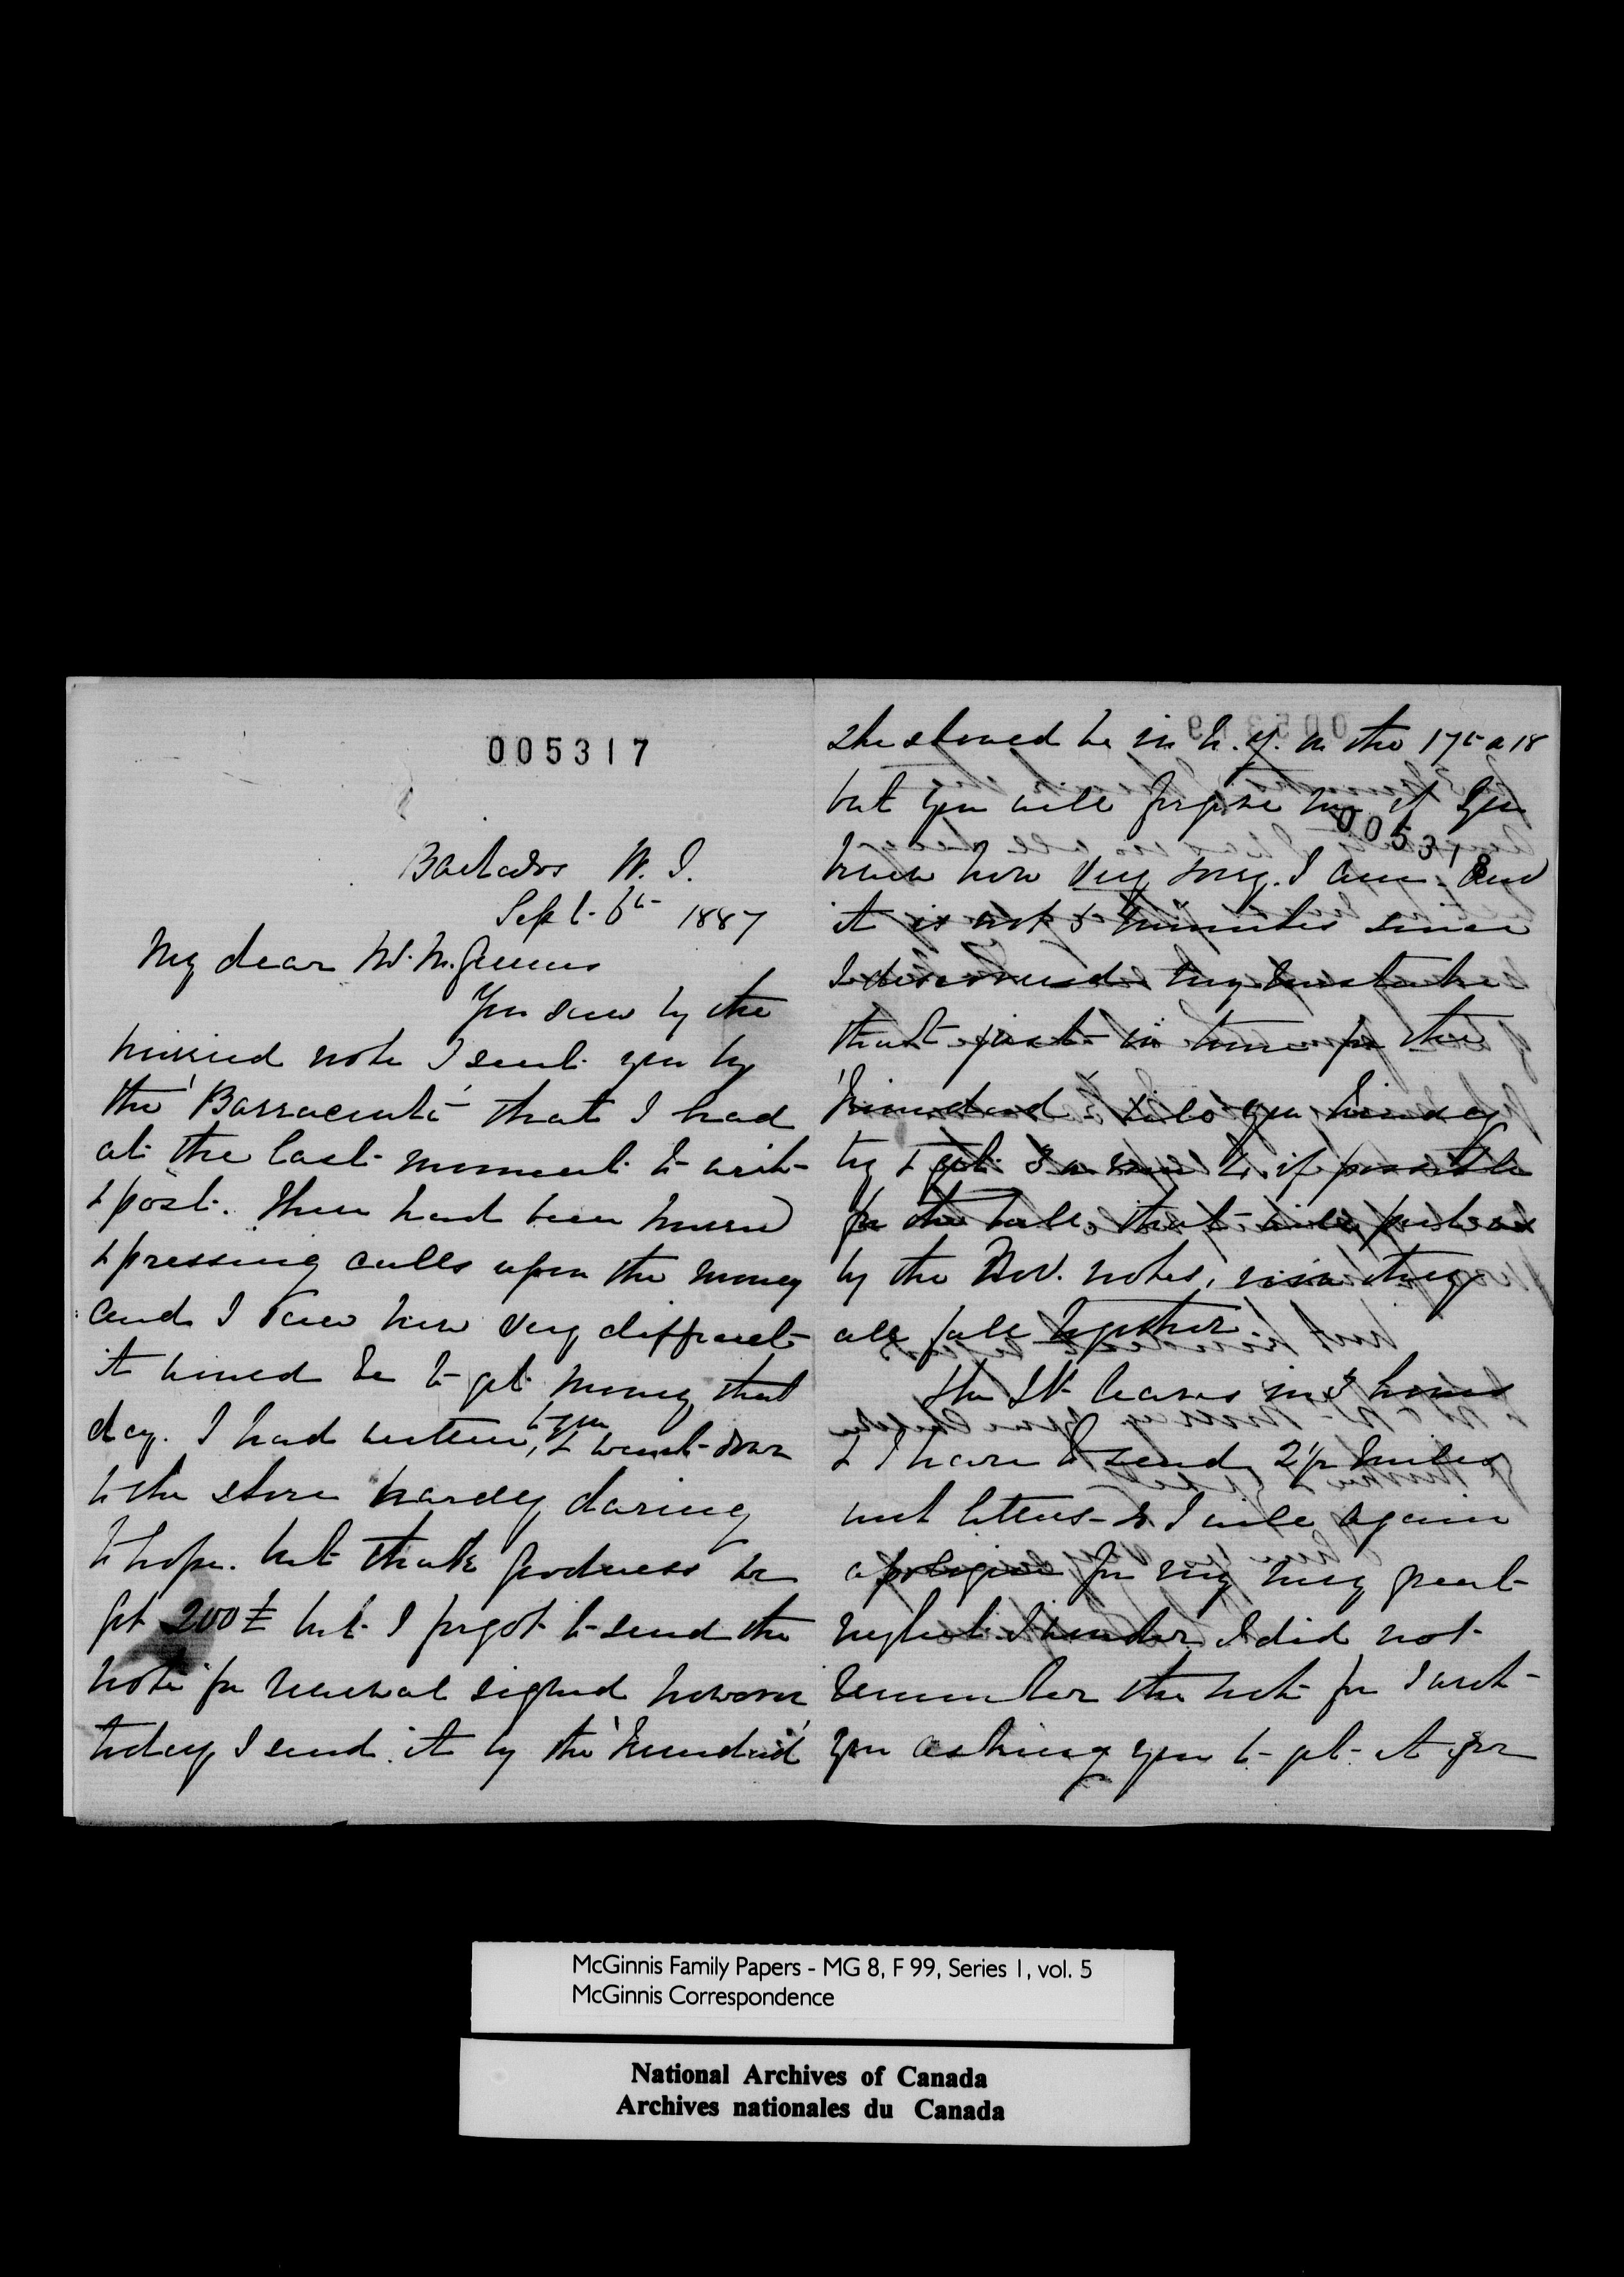 005317
Barbados W. I.
Sept. 6th 1887
My dear Mr. McGinnis
You saw by the
hurried note I sent you by
the 'Barracouta' that I had
at the last moment to write
& post. There had been
& pressing calls upon the money
and I saw how very difficult
it would be to get money that
day. I had written to you, & went down
to the store hardly daring
to hope. but thank goodness he
got 200£ but I forgot to send the
note for renewal signed however
today I send it by the 'Trinidad'
she should be in N.Y. on the 17th or 18
but you will forgive me if you
005318
knew how very sorry I am. And
it is not 5 minutes since
I discovered my mistake
that just in time for the
'Trinidad' Will you kindly
try & get if possible
for the bill that will
by the Nov. notes, they
all fall together.
The St. leaves in 3 hours
& I have to send 2½ miles
with letters - so I will again
apologise for my very great
neglect. I wonder I did not
remember the note for I wrote
you asking you to get it for
McGinnis Family Papers - MG 8, F 99, Series 1, vol. 5
McGinnis Correspondence
National Archives of Canada
Archives nationales du Canada